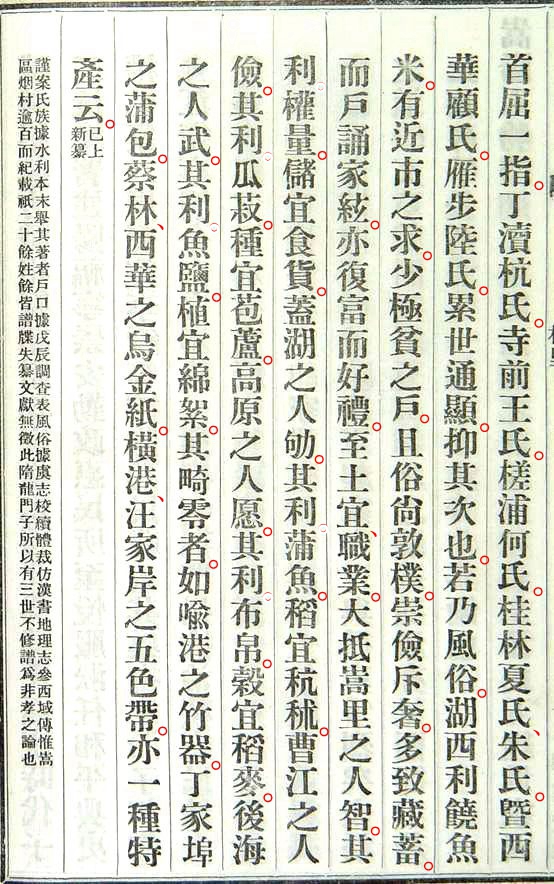 首屈一指。丁瀆杭氏。寺前王氏。槎浦何氏。桂林夏氏、朱氏。暨西
華顧氏。雁步陸氏。累世通顯。抑其次也。若乃風俗。湖西利饒魚
米。有近市之求。少極貧之戶。且俗尙敦樸。崇儉斥奢。多致藏蓄。
而戶誦家絃。亦復富而好禮。至土宜、職業。大抵嵩里之人智。其
利權量。儲宜食貨。蓋湖之人劬。其利蒲魚。稻宜秔秫。曹江之人
儉。其利瓜菽。種宜苞蘆。高原之人愿。其利布帛。穀宜稻麥。後海
之人武。其利魚鹽。植宜綿絮。其畸零者。如喻港之竹器。丁家埠
之蒲包。蔡林、西華之烏金紙。橫港、汪家岸之五色帶。亦一種特
產云。已上新纂
謹案氏族據水利本末舉其著者戶口據戊辰調查表風俗據虞志校續體裁仿漢書地理志叅西域傳惟嵩
區烟村逾百而紀載祇二十餘姓餘皆譜牒失纂文獻無徵此隋龍門子所以有三世不修譜爲非孝之論也